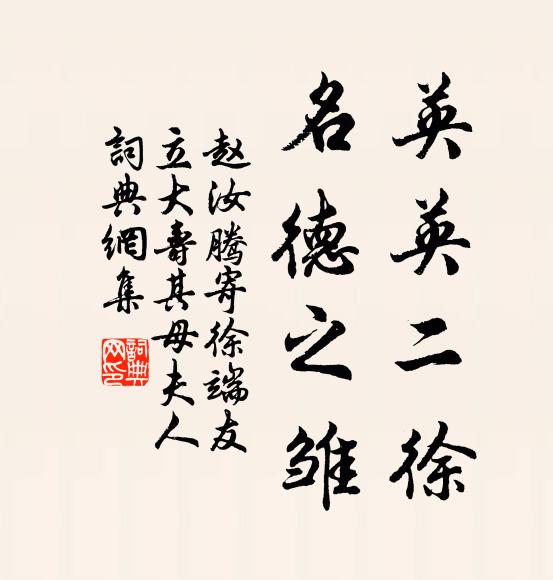 英英二徐
名德之雏
赵汝腾寄徐端友
立大寿其母夫人
詞典網集
詞典网印